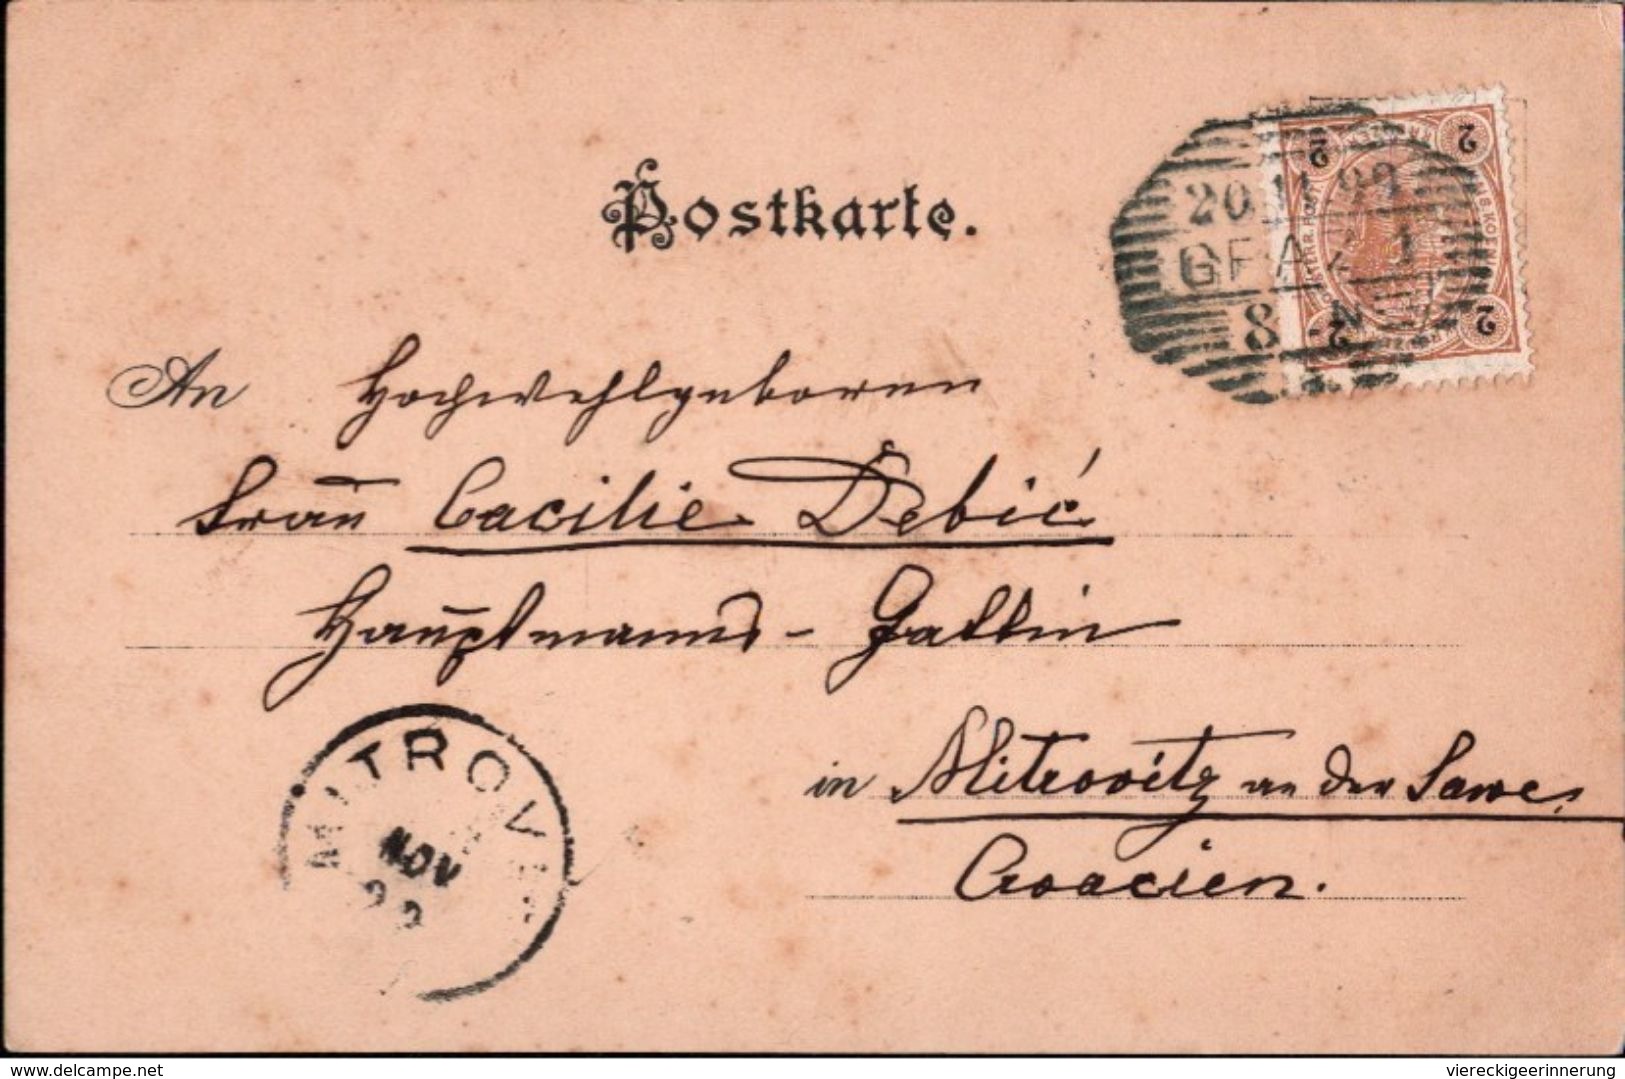 Postkarte.
20 11 99
GRAZ 1
8 - N
2 2
2 2
An Hochwohlgeboren
Frau Cacilie Debić
Hauptmanns - Gattin
in Mitrovitz an der Sawe,
Croacien.
MITROV
NOV
99
www.delcampe.net
viereckigeerinnerung